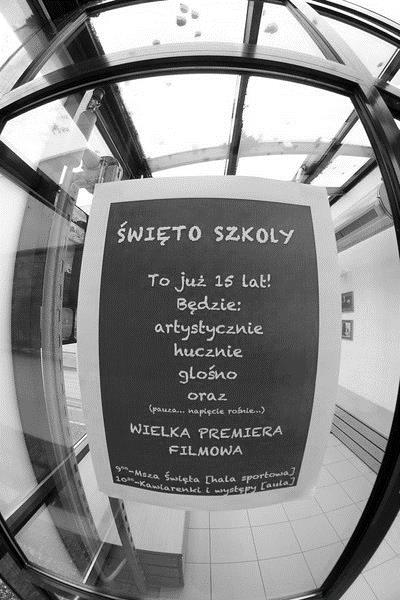 ŚWIĘTO SZKOŁY
To już 15 lat!
Będzie:
artystycznie
hucznie
głośno
oraz
(pauza... napięcie rośnie...)
WIELKA PREMIERA
FILMOWA
9⁰⁰-Msza Święta [hala sportowa]
10³⁰-Kawiarenki i występy [aula]